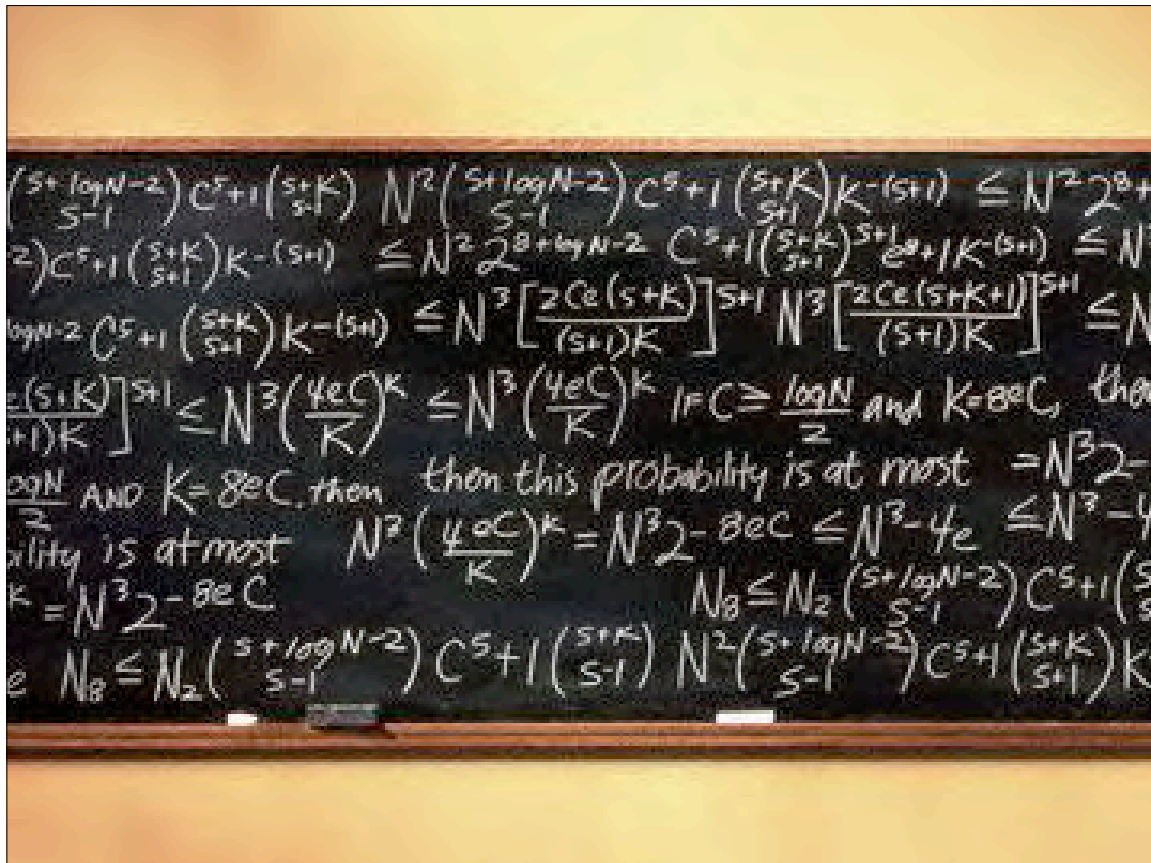 (s+logN-2 S-1)C^5+1(s+K s-1) N^2(s+logN-2 S-1)C^5+1(s+K s+1)K^-(s+1) ≤N^2 2^8+
-2)C^5+1(s+K s+1)K^-(s+1) ≤N^2 2^8+logN-2 C^5+1(s+K s+1)^s+1 e^8+1K^-(s+1) ≤N
logN-2 C^5+1(s+K s+1)K^-(s+1) ≤N^3[2Ce(s+K)/(s+1)K]^s+1 N^3[2Ce(s+K+1)/(s+1)K]^s+1 ≤N
e(s+K)/+1)K]^s+1 ≤N^3(4eC/K)^K ≤N^3(4eC/K)^K IF C≥logN/2 and K=8eC, then
ogN/2 AND K=8eC, then then this probability is at most =N^3 2-
bility is at most N^3(4eC/K)^K=N^3 2^-8eC ≤N^3-4e ≤N^3-4
K =N^3 2^-8eC N8≤N2(s+logN-2 S-1)C^5+1(S
e N8≤N2(s+logN-2 S-1)C^5+1(s+K S-1) N^2(s+logN-2 S-1)C^5+1(s+K s+1)K